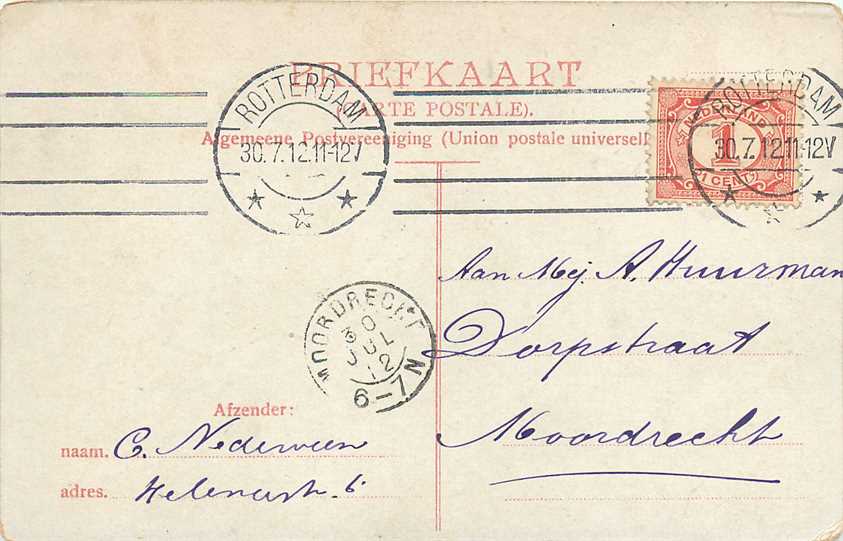 BRIEFKAART
(CARTE POSTALE).
Algemeene Postvereeniging (Union postale universell
ROTTERDAM
30.7.12.11-12V
NEDERLAND
1
1 CENT
ROTTERDAM
30.7.12.11-12V
Aan Mej. A. Huurman
Dorpstraat
Moordrecht
MOORDRECHT
30
JUL
12
6-7N
Afzender:
naam. C. Nederveen
adres. Helenastr. 6